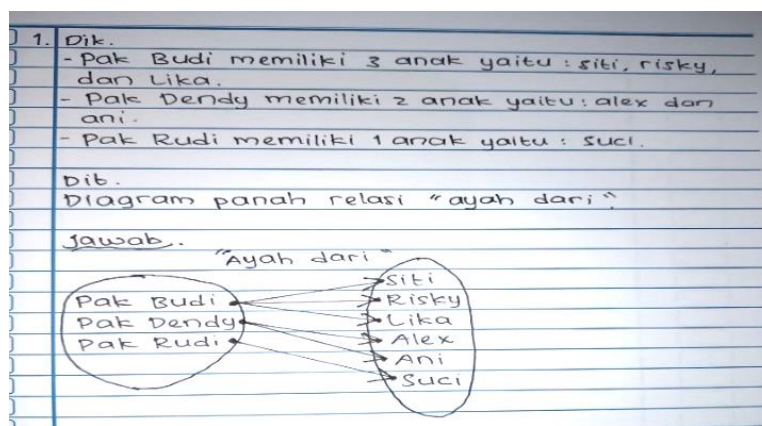 1. Dik.
- Pak Budi memiliki 3 anak yaitu : siti, risky,
dan Lika.
- Pak Dendy memiliki 2 anak yaitu : alex dan
ani.
- Pak Rudi memiliki 1 anak yaitu : suci.
Dit.
Diagram panah relasi "ayah dari"
Jawab.
"Ayah dari"
Siti
Pak Budi Risky
Pak Dendy Lika
Pak Rudi Alex
Ani
Suci